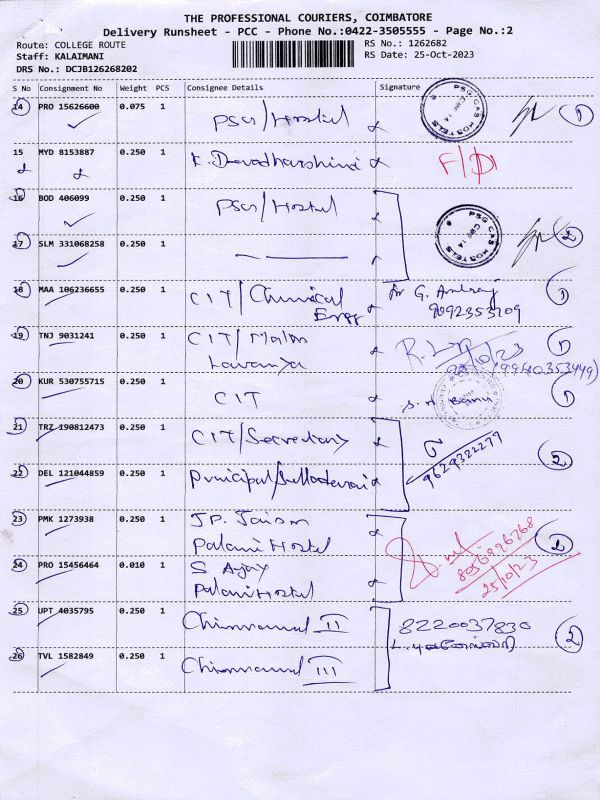 THE PROFESSIONAL COURIERS, COIMBATORE
Delivery Runsheet - PCC - Phone No.:0422-3505555 - Page No.:2
Route: COLLEGE ROUTE
Staff: KALAIMANI
DRS No.: DCJB126268202
RS No.: 1262682
RS Date: 25-Oct-2023
S No Consignment No Weight PCS Consignee Details Signature
14 PRO 15626600 0.075 1 PSG/Hostel PSG CAS HOSTELS CBE 14 1
15 MYD 8153887 0.250 1 K. Devadharshini F/D
16 BOD 406099 0.250 1 PSG/Hostel PSG CAS HOSTELS CBE 14 2
17 SLM 331068258 0.250 1
18 MAA 106236655 0.250 1 CIT/Chemical Engg G. Antraj 9092353109 1
19 TNJ 9031241 0.250 1 CIT/ Lavanya 25/10/23 (9940353449) 1
20 KUR 530755715 0.250 1 CIT S. A Banu 1
21 TRZ 190812473 0.250 1 CIT/Secretary 9629322279 2
22 DEL 121044859 0.250 1
23 PMK 1273938 0.250 1 J.P. Jaison Palani Hostel 8056996768 25/10/23 2
24 PRO 15456464 0.010 1 S Ajay Palani Hostel
25 UPT 4035795 0.250 1 Chinnamul II 8220037830 2
26 TVL 1582849 0.250 1 Chinnamul III